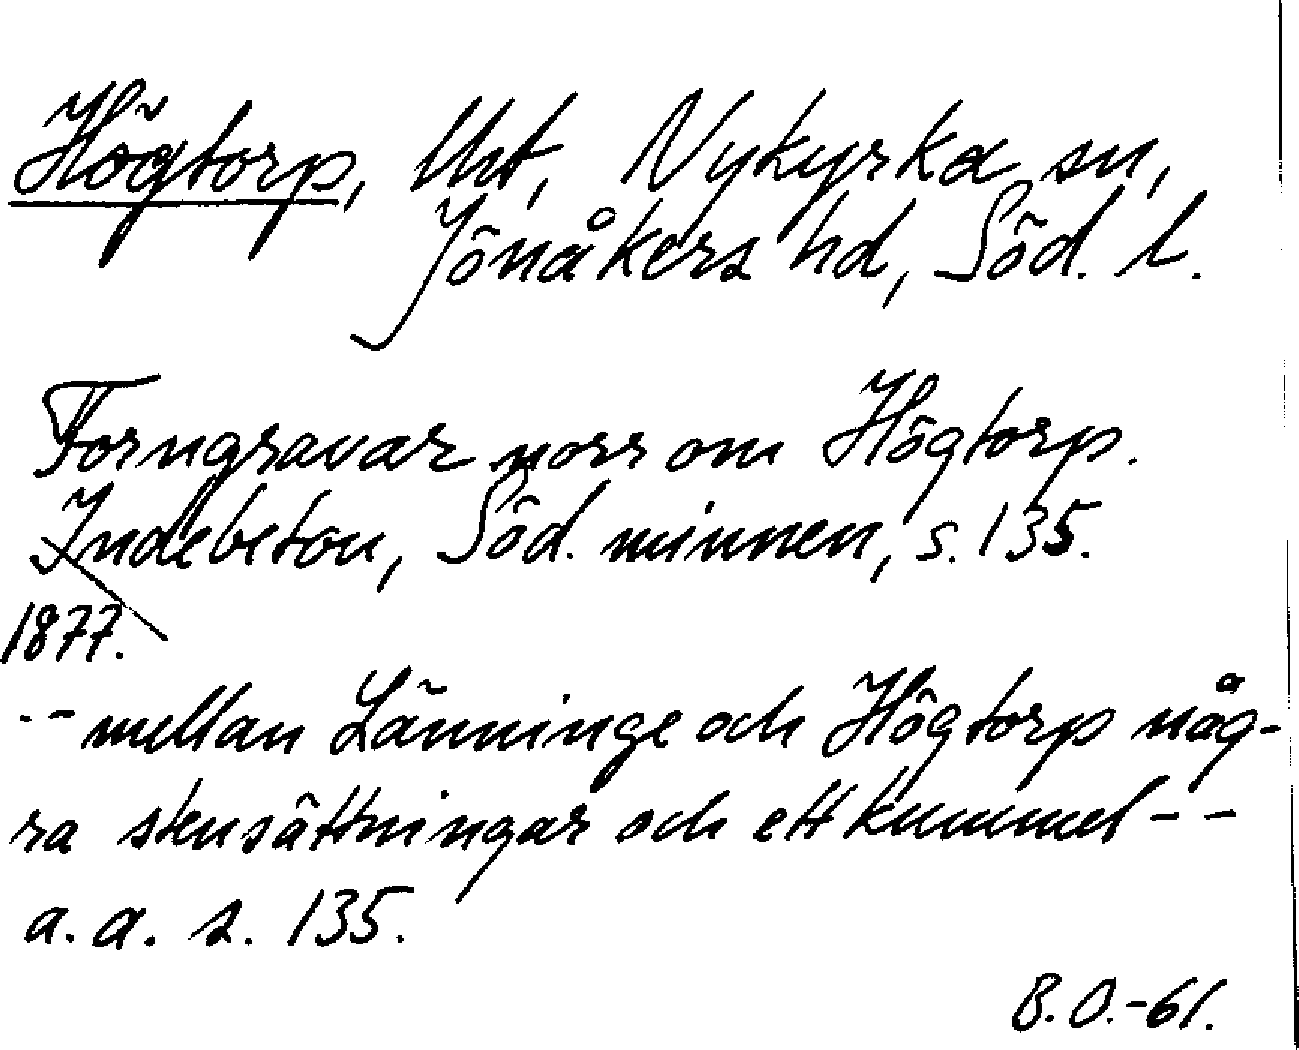 Högtorp, lht, Nykyrka sn,
Jönåkers hd, Söd. l.
Forngravar norr om Högtorp.
Indebetou, Söd. minnen, s. 135.
1877.
-- mellan Länninge och Högtorp någ-
ra stensättningar och ett kummel --
a. a. s. 135.
B. O. -61.